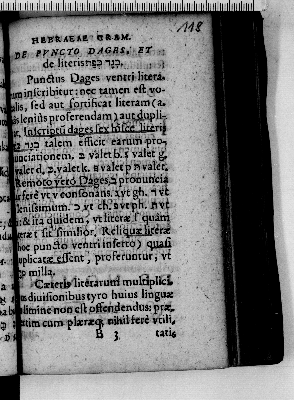 118
HEBRAEAE GRAM.
DE PVNCTO DAGES, ET
de literis בגד כפת.
Punctus Dages ventri litera.
rum inscribitur: nec tamen est vo-
calis, sed aut fortificat literam (a.
lenius proferendam) aut dupli-
Inscriptū dages sex hisce literis
בגד כפת talem efficit earum pro-
nunciationem, ב valet b. ג valet g,
valet d, כ valet k. פ valet p ת valet.
Remoto verò Dages, ב pronuncia
ferè vt v consonans. ג vt gh. ד vt
lenissimum. כ vt ch. פ vt ph. ת vt
& ita quidem, vt literae s quàm
t sit similior. Reliquae literae
hoc puncto ventri inserto) quasi
duplicatae essent, proferuntur, vt
milla.
Caeteris literarum multiplici.
diuisionibus tyro huius linguae
limine non est offendendus: prae-
cum pleraeq; nihil ferè vtili,
B 3 tatis